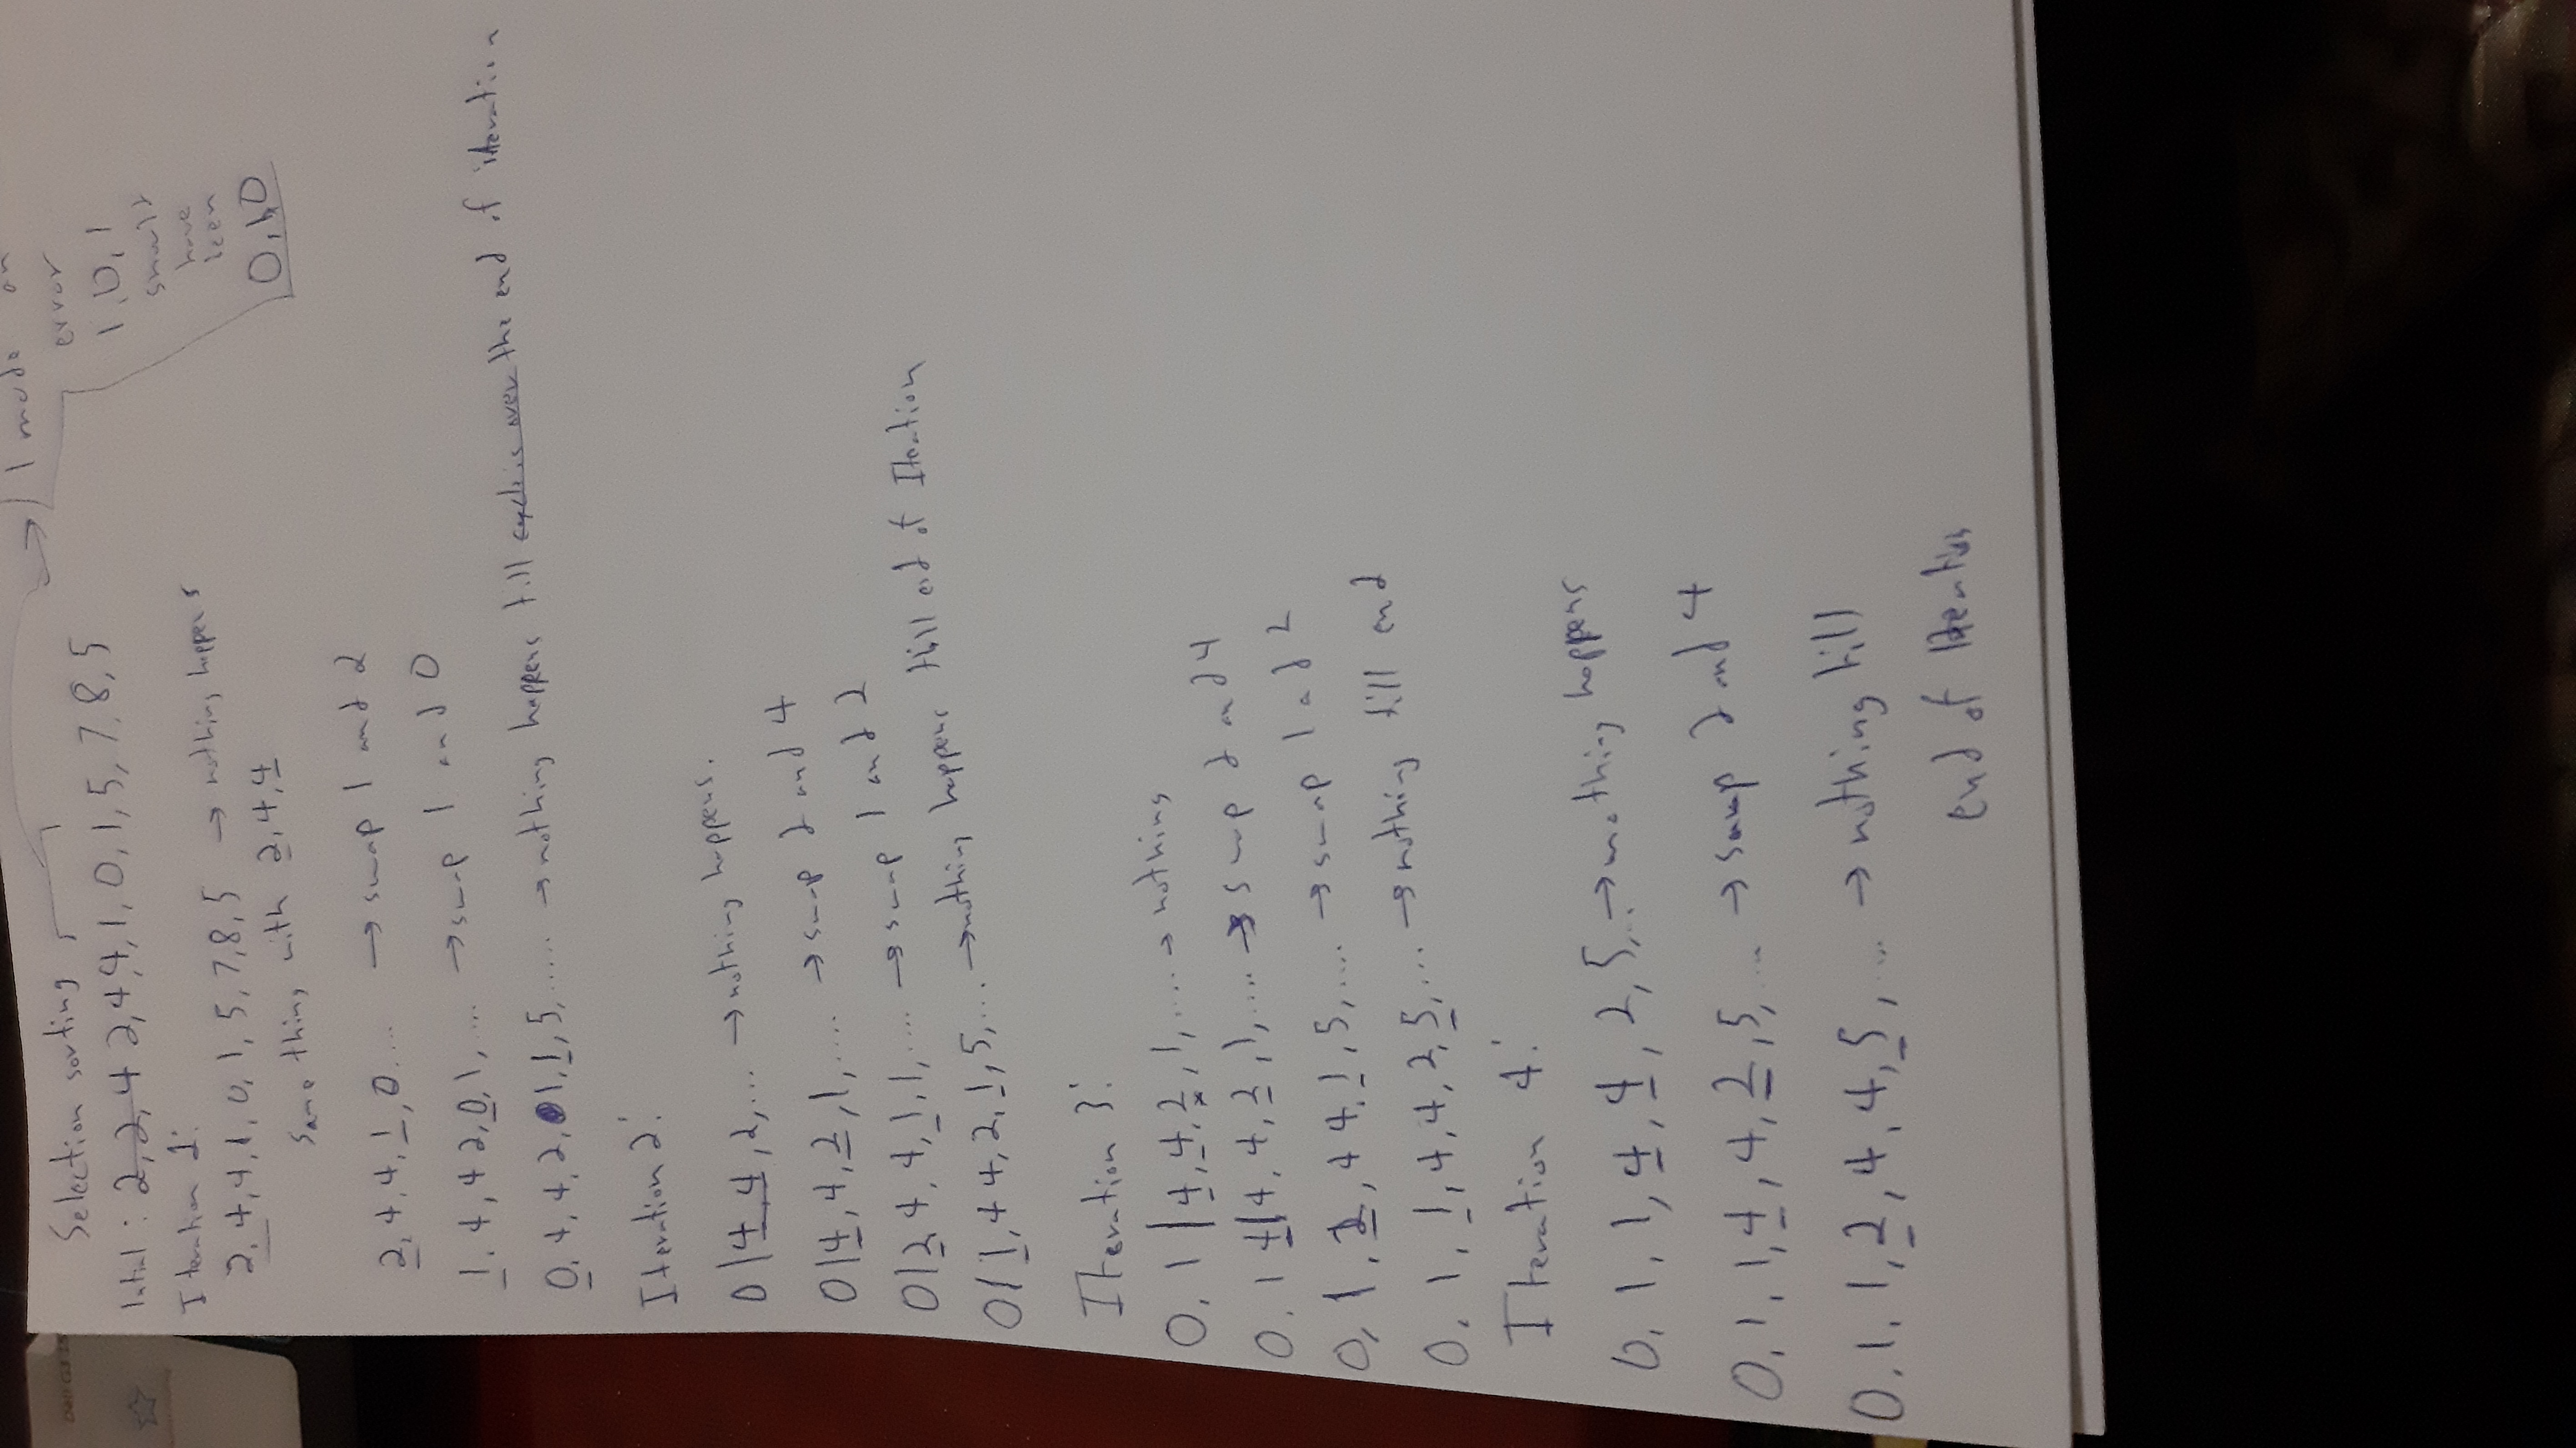 Dell G3 15
I made an
error
1, 0, 1
should
have
been
0, 1, 0
Selection sorting
Intial : 2, 2, 4 2, 4, 4, 1, 0, 1, 5, 7, 8, 5
Iteration 1:
2, 4, 4, 1, 0, 1, 5, 7, 8, 5 → nothing happens
Same thing with 2, 4, 4
2, 4, 4, 1, 0 ... → swap 1 and 2
1, 4, 4 2, 0, 1, ... → swap 1 and 0
0, 4, 4, 2, 1, 1, 5, ..... → nothing happens till cycle is over the end of iteration
Iteration 2:
0 | 4, 4, 2, ... → nothing happens.
0 | 4, 4, 2, 1, .... → swap 2 and 4
0 | 2, 4, 4, 1, 1, .... → swap 1 and 2
0 | 1, 4 4, 2, 1, 5, ... → nothing happens till end of Iteration
Iteration 3:
0, 1 | 4, 4, 2, 1, .... → nothing
0, 1 4 | 4, 4, 2, 1, .... → swap 2 and 4
0, 1, 2, 4 4, 1, 5, .... → swap 1 and 2
0, 1, 1, 4, 4, 2, 5, ... → nothing till end
Iteration 4:
0, 1, 1, 4, 4, 2, 5, ... → nothing happens
0, 1, 1, 4, 4, 2, 5, ... → swap 2 and 4
0, 1, 1, 2, 4, 4, 5, ... → nothing till
end of Iteration